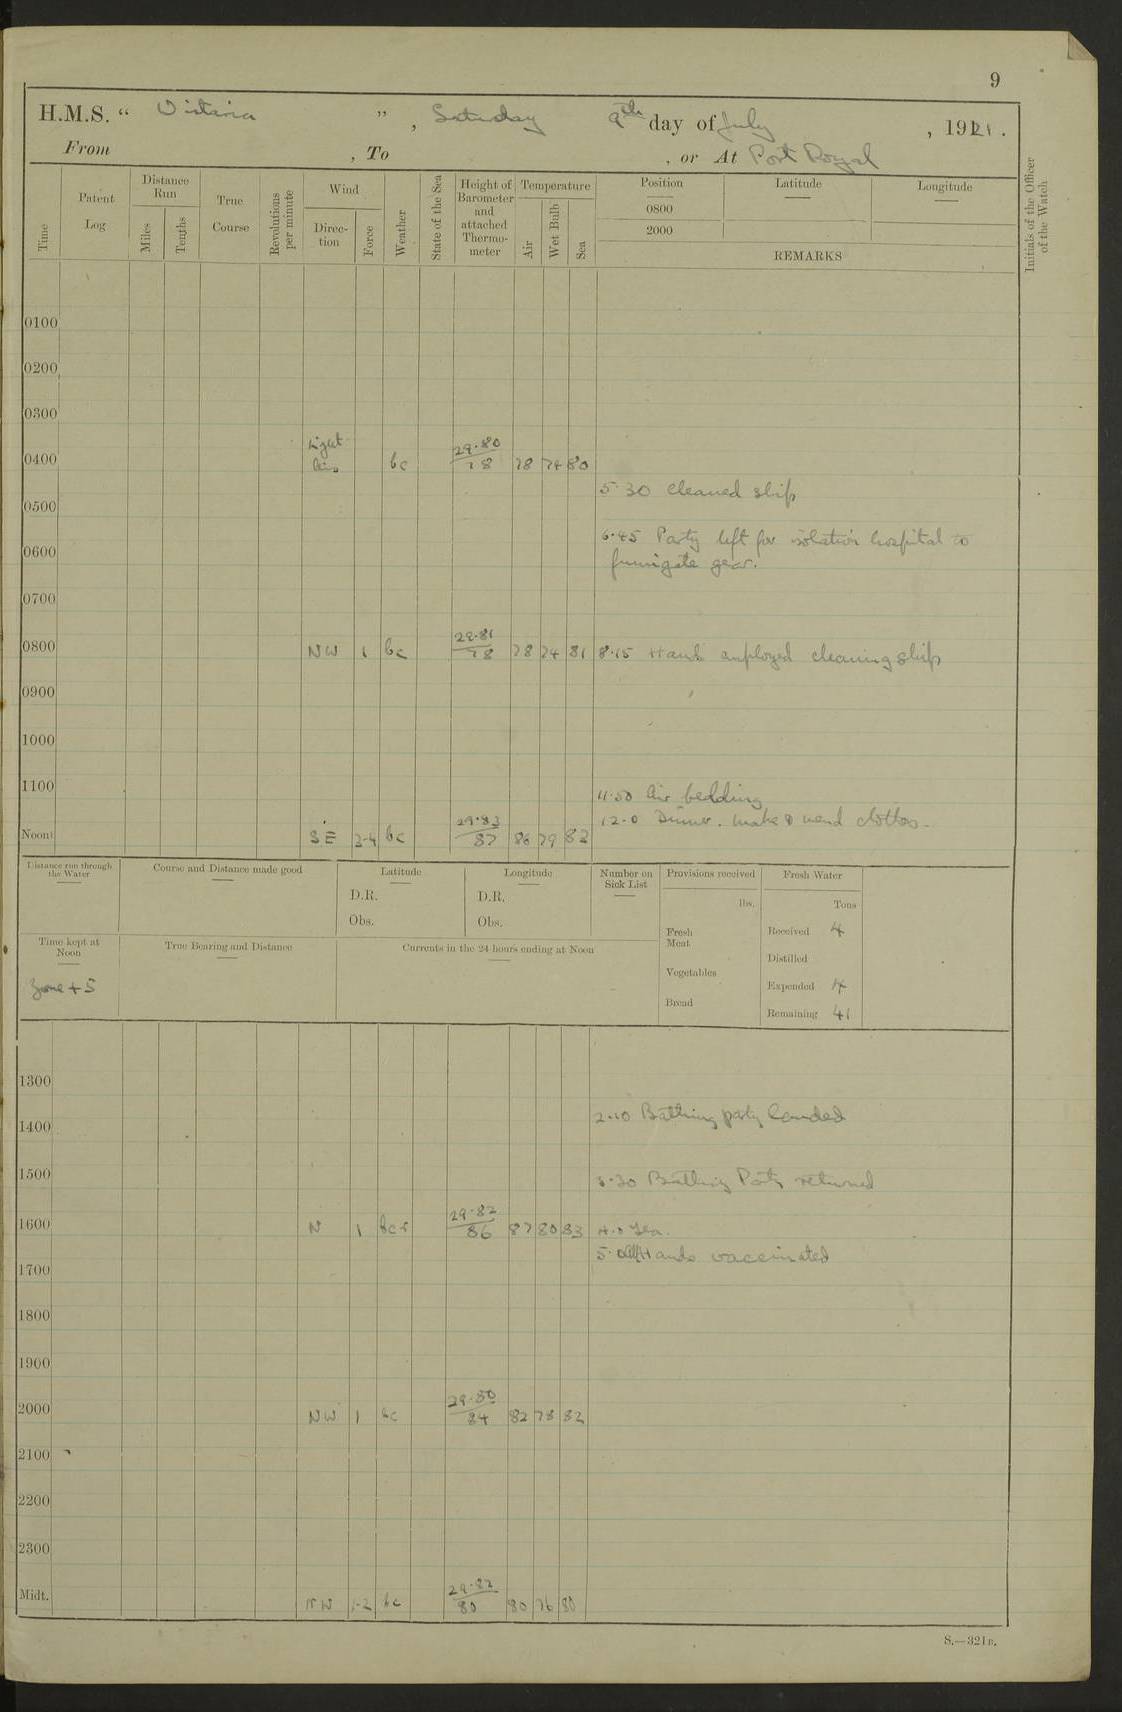 9
H.M.S. “ Wistaria ” , Saturday 9th day of July , 1921 .
From , To , or At Port Royal
Time
Patent Log
Distance Run
Miles
Tenths
True Course
Revolutions per minute
Wind
Direc-tion
Force
Weather
State of the Sea
Height of Barometer and attached Thermo-meter
Temperature
Air
Wet Bulb
Sea
Position
0800
2000
Latitude
Longitude
REMARKS
Initials of the Officer of the Watch
0100
0200
0300
0400 Light airs bc 29.80 78 78 74 80
5.30 Cleaned ship
0500
6.45 Party left for isolation hospital to
0600 fumigate gear.
0700
0800 NW 1 bc 29.81 78 78 74 81 8.15 Hands employed cleaning ship
0900
1000
1100
11.50 Air bedding
12.0 Dinner. Make & mend clothes.
Noon SE 3-4 bc 29.83 87 86 79 82
Distance run through the Water
Course and Distance made good
Latitude
D.R.
Obs.
Longitude
D.R.
Obs.
Number on Sick List
Provisions received
lbs.
Fresh Meat
Vegetables
Bread
Fresh Water
Tons
Received 4
Distilled
Expended 4
Remaining 41
Time kept at Noon
Zone + 5
True Bearing and Distance
Currents in the 24 hours ending at Noon
1300
2.10 Bathing party landed
1400
1500 3.20 Bathing Party returned
1600 N 1 bcr 29.82 86 87 80 83 4.0 Tea.
5.0 Hands vaccinated
1700
1800
1900
2000 NW 1 bc 29.80 84 82 78 82
2100
2200
2300
Midt. NW 1-2 bc 29.82 80 80 76 80
S.—321B.